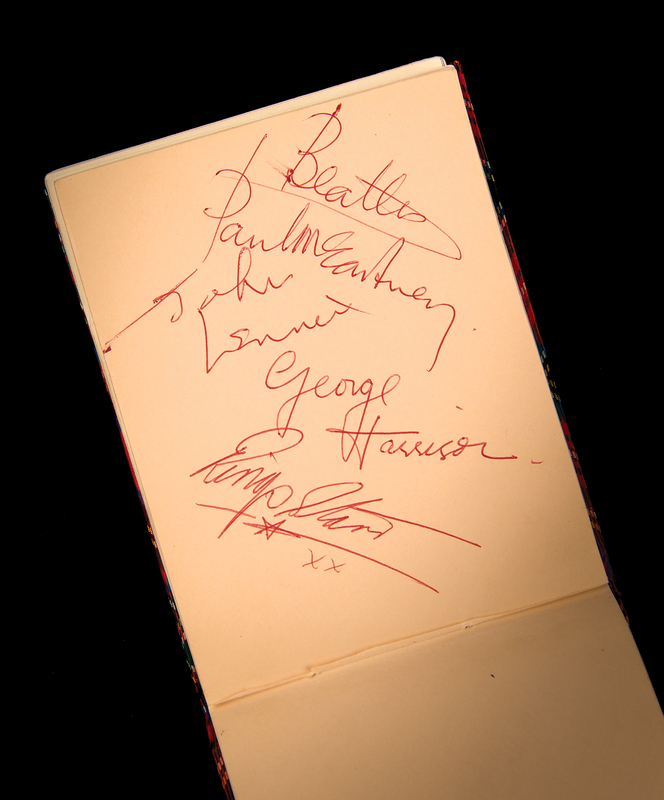 Beatles
Paul McCartney
John
Lennon
George
Harrison.
Ringo Starr
xx